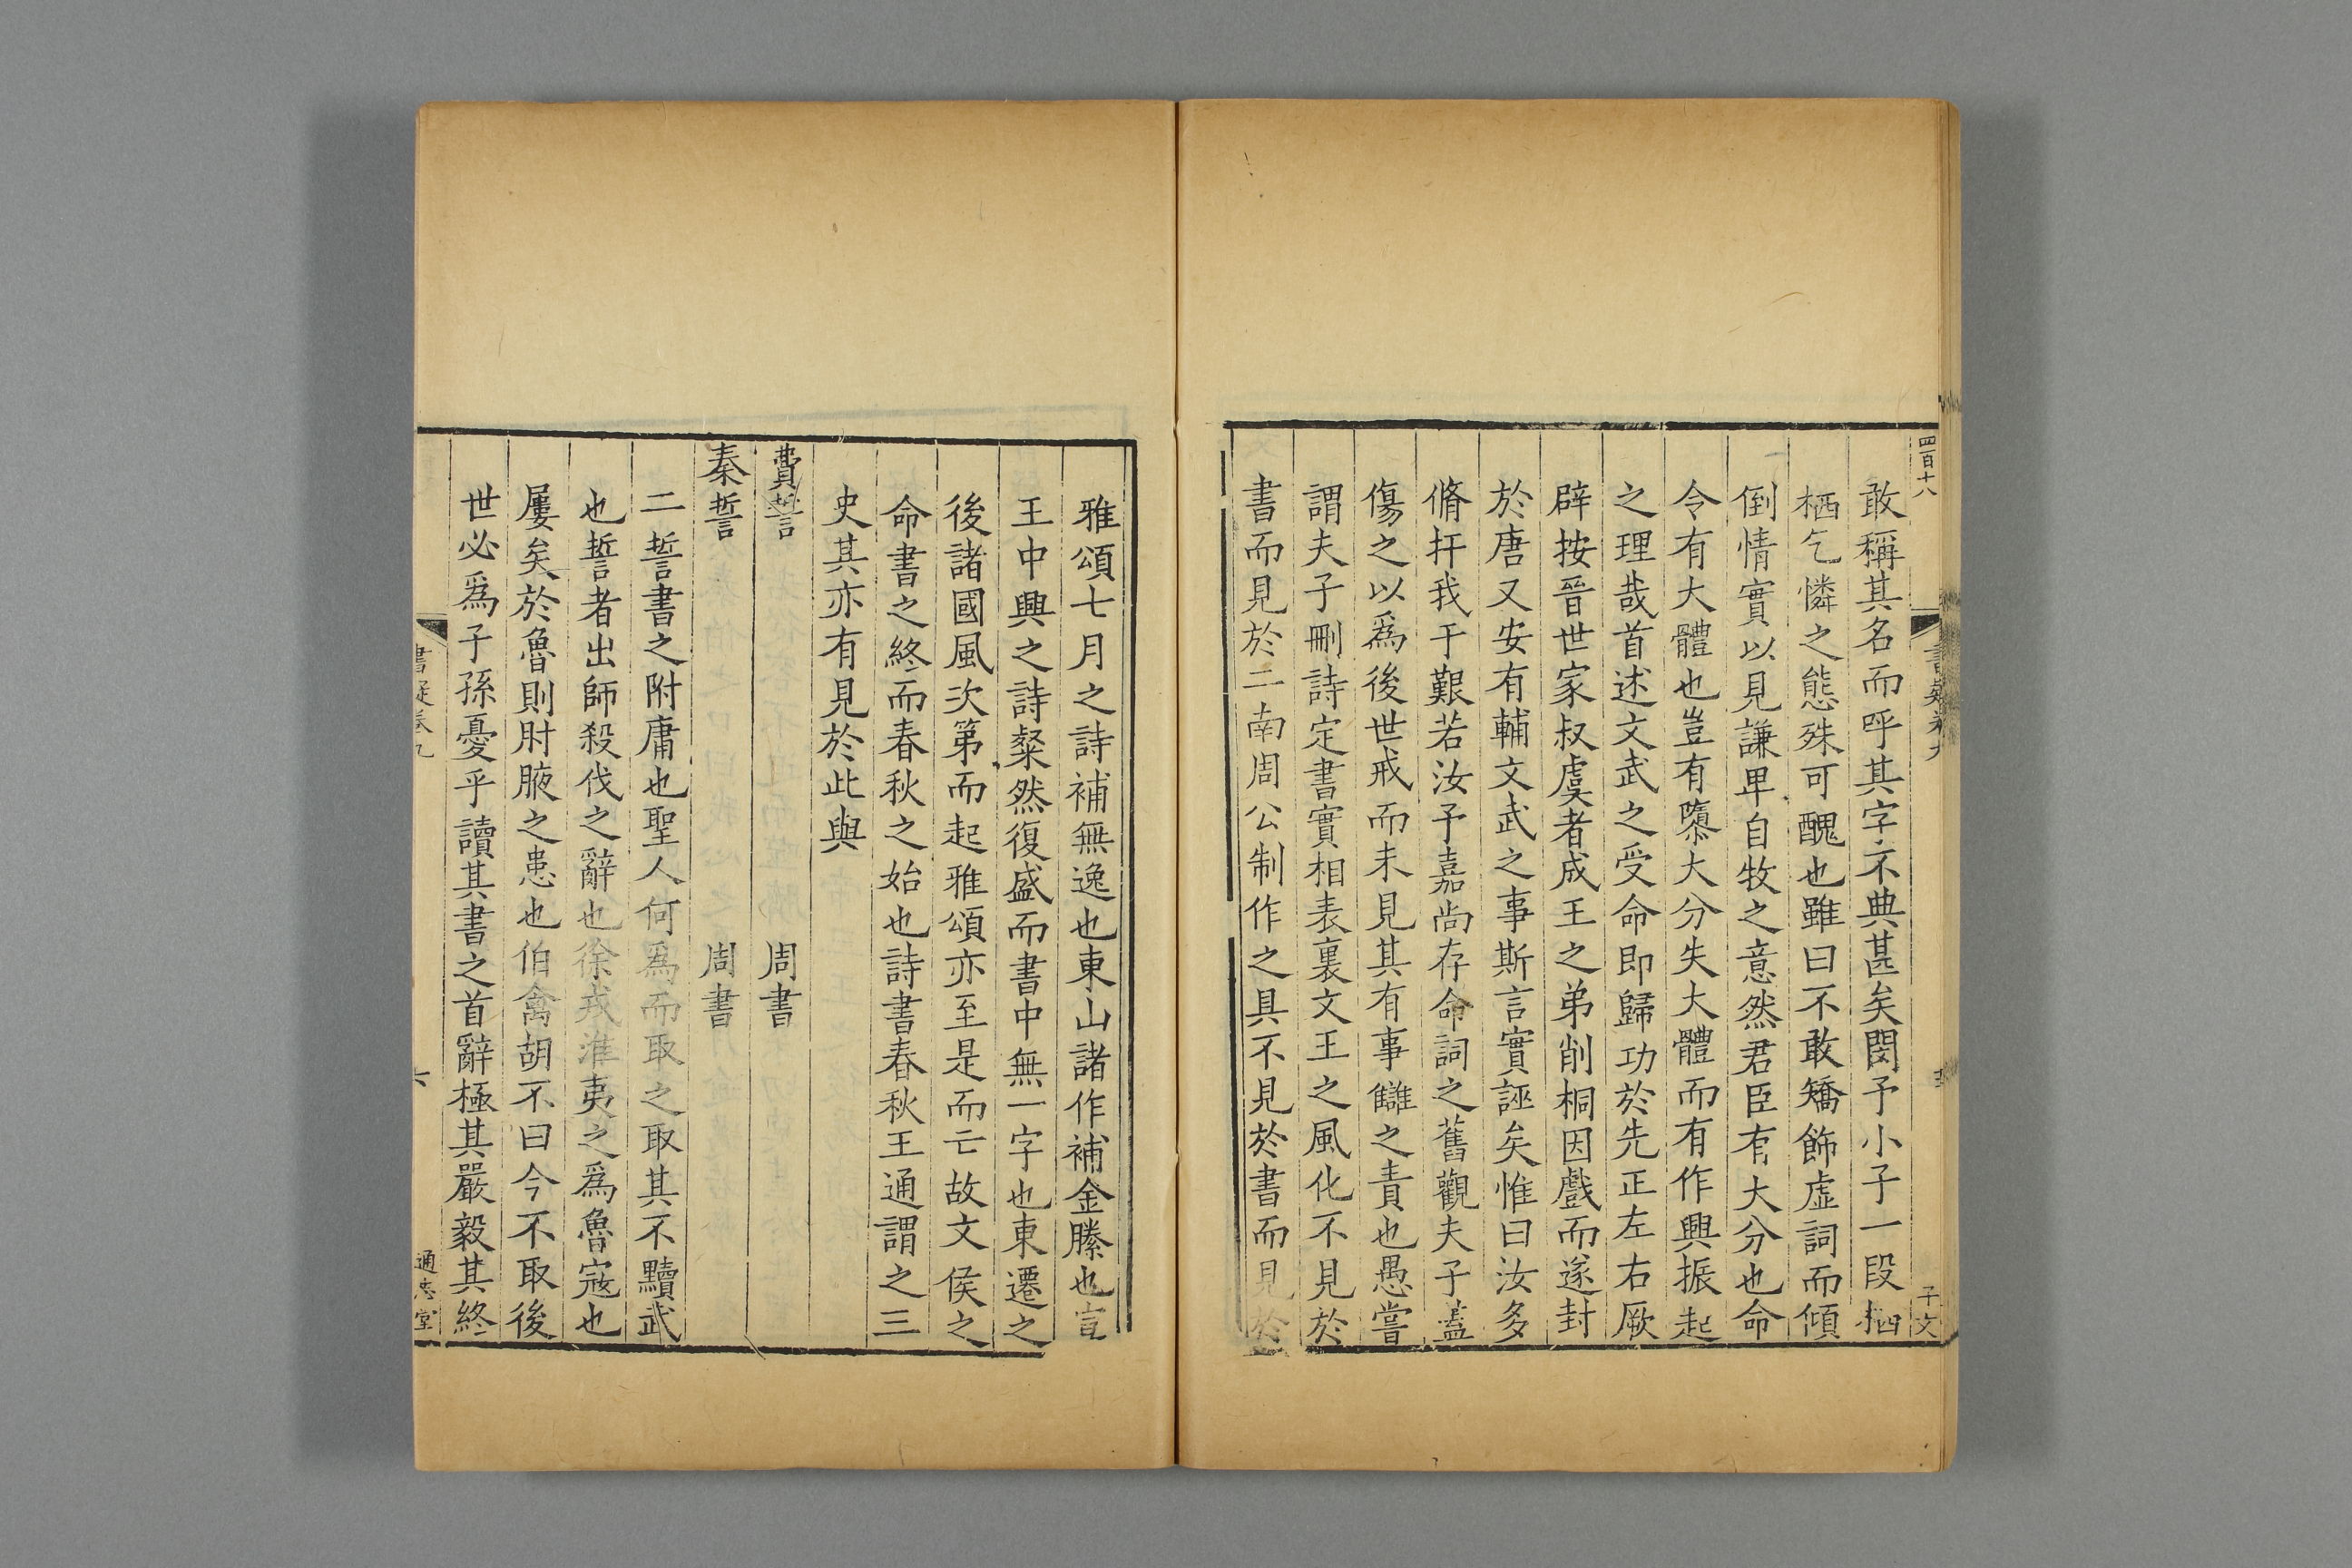 四百十八
書疑卷九
敢稱其名而呼其字不典甚矣閔予小子一段栖
栖乞憐之態殊可醜也雖曰不敢矯飾虛詞而傾
倒情實以見謙卑自牧之意然君臣有大分也命
令有大體也豈有隳大分失大體而有作興振起
之理哉首述文武之受命即歸功於先正左右厥
辟按晉世家叔虞者成王之弟削桐因戲而遂封
於唐又安有輔文武之事斯言實誣矣惟曰汝多
脩扞我于艱若汝予嘉尚存命詞之舊觀夫子蓋
傷之以為後世戒而未見其有事讎之責也愚嘗
謂夫子刪詩定書實相表裏文王之風化不見於
書而見於二南周公制作之具不見於書而見於
雅頌七月之詩補無逸也東山諸作補金縢也宣
王中興之詩粲然復盛而書中無一字也東遷之
後諸國風次第而起雅頌亦至是而亡故文侯之
命書之終而春秋之始也詩書春秋王通謂之三
史其亦有見於此與
費誓 周書
秦誓 周書
二誓書之附庸也聖人何為而取之取其不黷武
也誓者出師殺伐之辭也徐戎淮夷之為魯寇也
屢矣於魯則肘腋之患也伯禽胡不曰今不取後
世必為子孫憂乎讀其書之首辭極其嚴毅其終
書疑卷九
六
通志堂